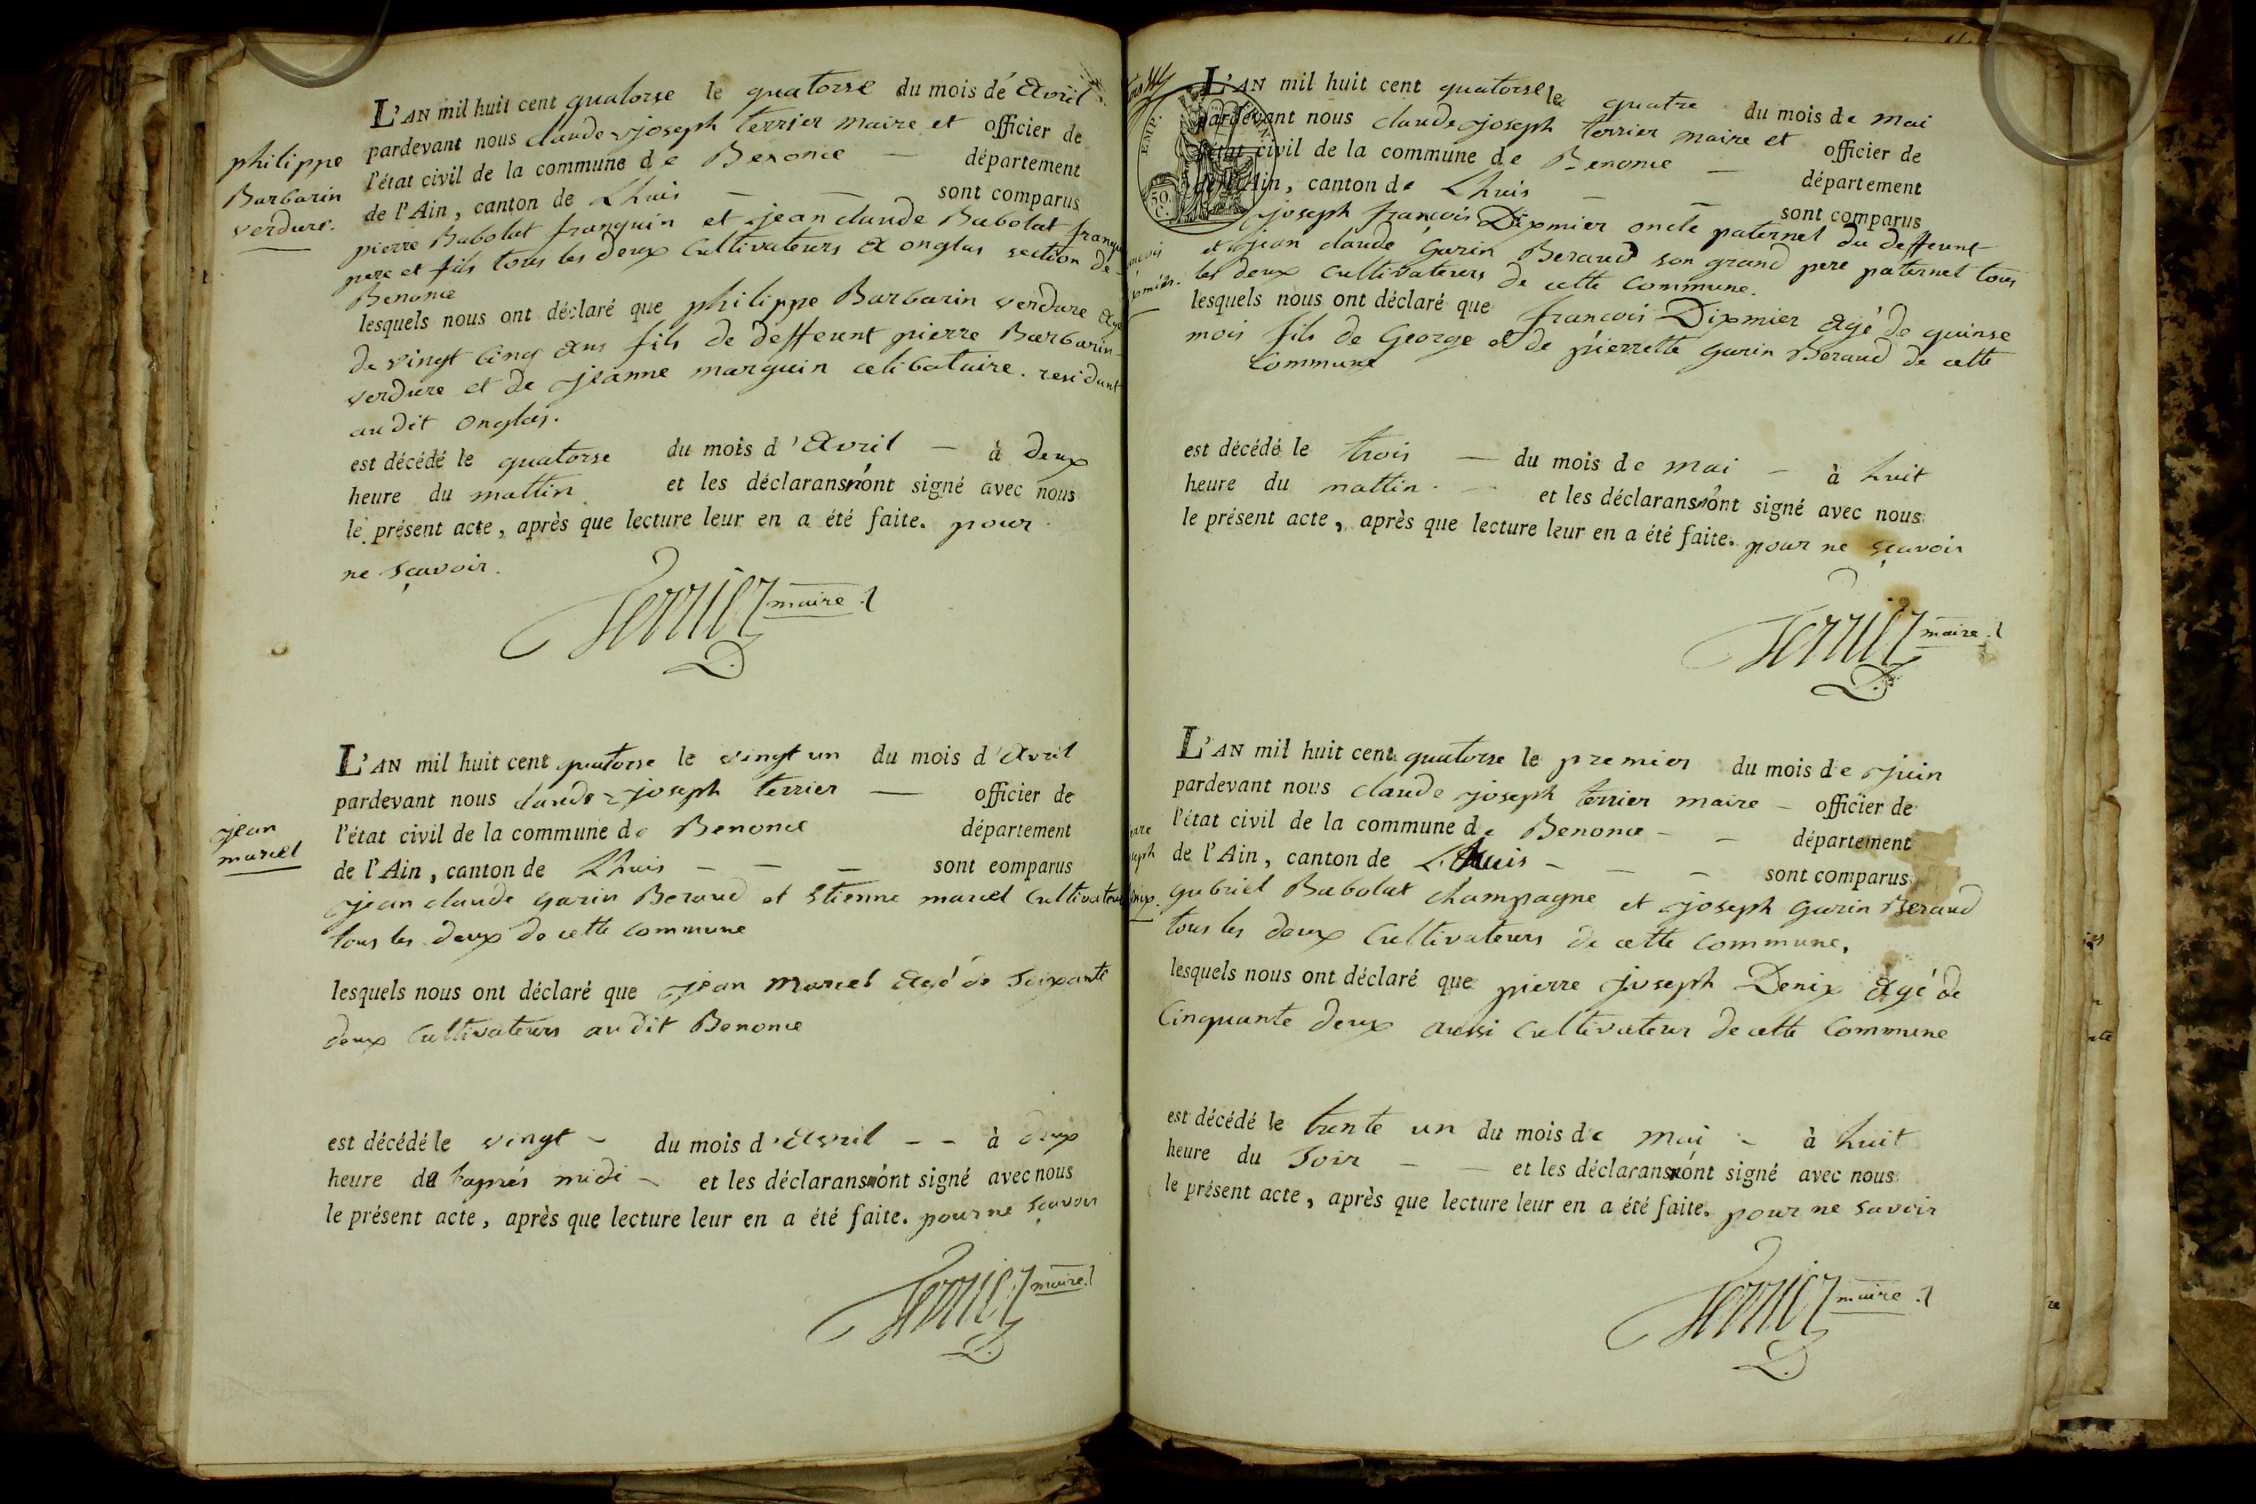 L'AN mil huit cent quatorse le quatorse du mois de Avril
pardevant nous claude joseph terrier maire et officier de
l'état civil de la commune de Benonce — département
de l'Ain, canton de Lhuis — — sont comparus
pierre Babolat franquin et jean claude Babolat
pere et fils tous les deux Cultivateurs a onglas section de
Benonce
lesquels nous ont déclaré que philippe Barbarin verdure agé
de vingt cinq ans fils de deffeunt pierre Barbarin
verdure et de jeanne marguin celibataire. residant
audit onglas.
est décédé le quatorse du mois d'Avril — à deux
heure du mattin et les déclarans n'ont signé avec nous
le présent acte, après que lecture leur en a été faite. pour
ne sçavoir.
Terrier maire
philippe
Barbarin
verdure.
L'AN mil huit cent quatorse le vingt un du mois d'Avril
pardevant nous claude joseph terrier — officier de
l'état civil de la commune de Benonce département
de l'Ain, canton de Lhuis — — — sont comparus
jean claude garin Beraud et Etienne marcel Cultivateurs
tous les deux de cette commune
lesquels nous ont déclaré que jean Marcel agé de Soixante
deux Cultivateurs audit Benonce
est décédé le vingt — du mois d'Avril — — à deux
heure de l'aprés midi — et les déclarans n'ont signé avec nous
le présent acte, après que lecture leur en a été faite. pour ne sçavoir
Terrier maire
jean
marcel
L'AN mil huit cent quatorse le quatre du mois de mai
pardevant nous claude joseph terrier maire et officier de
l'état civil de la commune de Benonce — département
de l'Ain, canton de Lhuis — — sont comparus
joseph françois Dixmier oncle paternel du deffeunt
et jean claude garin Beraud son grand pere paternel tous
les deux cultivateurs de cette commune.
lesquels nous ont déclaré que francois Dixmier agé de quinse
mois fils de George et de pierrette garin Beraud de cette
Commune
est décédé le trois — du mois de mai — à huit
heure du mattin. — et les déclarans n'ont signé avec nous
le présent acte, après que lecture leur en a été faite. pour ne sçavoir
Terrier maire
EMP.
50.
C.
L'AN mil huit cent quatorse le premier du mois de juin
pardevant nous claude joseph terrier maire — officier de
l'état civil de la commune de Benonce — — département
de l'Ain, canton de Lhuis — — — sont comparus
gabriel Babolat champagne et joseph garin Beraud
tous les deux Cultivateurs de cette commune,
lesquels nous ont déclaré que pierre joseph Denix agé de
Cinquante deux aussi cultivateur de cette Commune
est décédé le trente un du mois de mai — à huit
heure du Soir — — et les déclarans n'ont signé avec nous
le présent acte, après que lecture leur en a été faite. pour ne savoir
Terrier maire